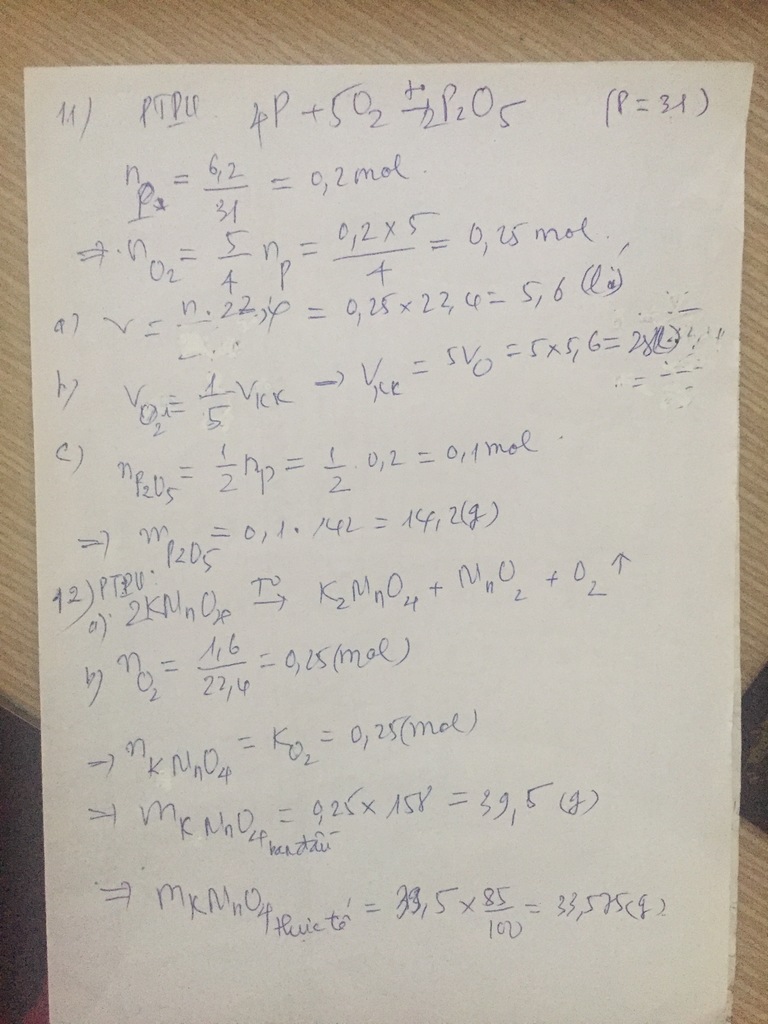 11) PTPU 4P + 5O2 t°→ 2P2O5 (P = 31)
nP = 6,2/31 = 0,2 mol.
⇒ nO2 = 5/4 nP = 0,2 × 5/4 = 0,25 mol.
a) V = n . 22,4 = 0,25 × 22,4 = 5,6 (lít)
b) VO2 = 1/5 VKK → VKK = 5VO = 5 × 5,6 = 28
c) nP2O5 = 1/2 nP = 1/2 . 0,2 = 0,1 mol.
⇒ mP2O5 = 0,1 . 142 = 14,2 (g)
12) PTPU:
a) 2KMnO4 T°→ K2MnO4 + MnO2 + O2 ↑
b) nO2 = 1,6/22,4 = 0,25 (mol)
→ nKMnO4 = KO2 = 0,25 (mol)
⇒ mKMnO4 ban đầu = 0,25 × 158 = 39,5 (g)
⇒ mKMnO4 thực tế = 39,5 × 85/100 = 33,575 (g)